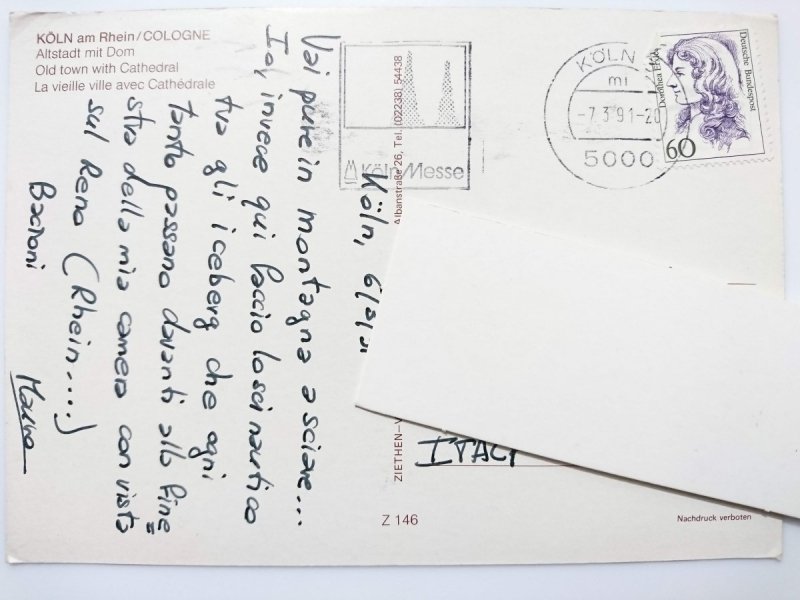 KÖLN am Rhein/COLOGNE
Altstadt mit Dom
Old town with Cathedral
La vieille ville avec Cathédrale
Köln,
Vai pure in montagna a sciare...
Io, invece qui faccio lo sci nautico
tra gli iceberg che ogni
tanto passano davanti alla fine
stra della mia camera con vista
sul Reno (Rhein.....)
Bacioni
KölnMesse
Albanstraße 26, Tel. (02238) 54438
ZIETHEN-V
KÖLN
mi
-7.3.91-20
5000
Deutsche Bundespost
Dorothea Erxleben
60
Z 146
Nachdruck verboten